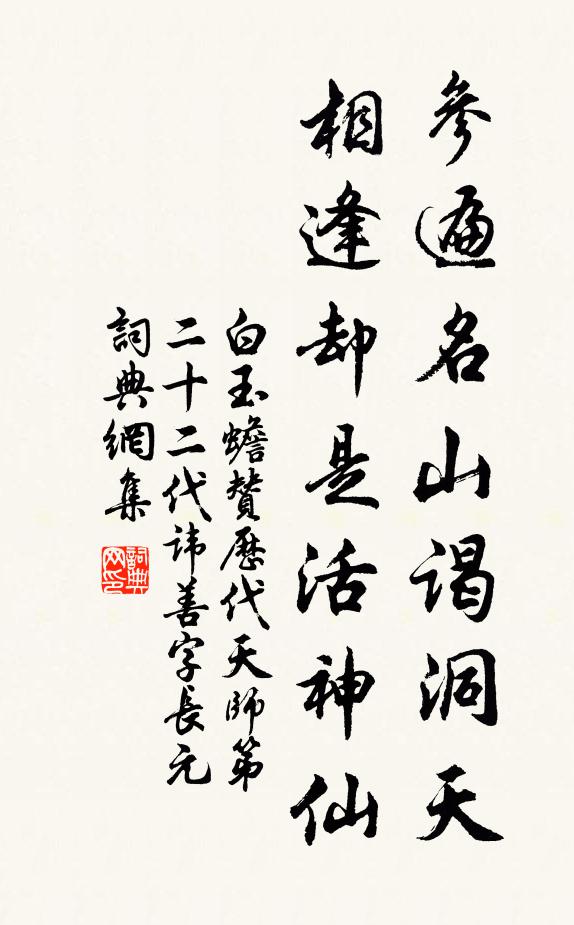 參遍名山謁洞天
相逢却是活神仙
白玉蟾贊歷代天師第
二十二代諱善字長元
詞典網集
詞典网印